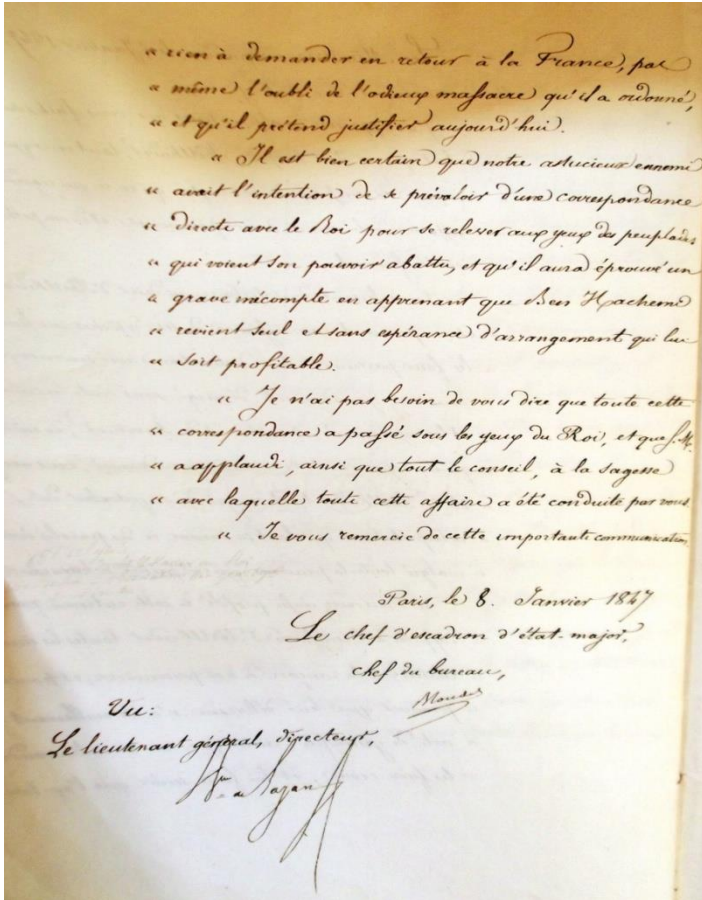 « rien à demander en retour à la France, pas
« même l'oubli de l'odieux massacre qu'il a ordonné,
« et qu'il prétend justifier aujourd'hui.
« Il est bien certain que notre astucieux ennemi
« avait l'intention de se prévaloir d'une correspondance
« directe avec le Roi pour se relever aux yeux des peuplades
« qui voient son pouvoir abattu, et qu'il aura éprouvé un
« grave mécompte en apprenant que Ben Hachemi
« revient seul et sans espérance d'arrangement qui lui
« soit profitable.
« Je n'ai pas besoin de vous dire que toute cette
« correspondance a passé sous les yeux du Roi, et que S. M.
« a applaudi, ainsi que tout le conseil, à la sagesse
« avec laquelle toute cette affaire a été conduite par vous.
« Je vous remercie de cette importante communication
Paris, le 8. Janvier 1847
Le chef d'escadron d'état-major,
chef du bureau,
Vu:
Le lieutenant général, directeur,